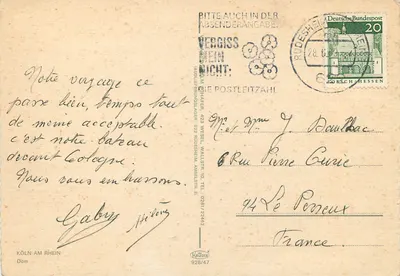 BITTE AUCH IN DER
ABSENDERANGABE
VERGISS
MEIN
NICHT:
DIE POSTLEITZAHL
RÜDESHEIM
28.6
Deutsche Bundespost
20
LORSCH/HESSEN
Notre voyage ce
passe bien, temps tout
de meme acceptable.
c'est notre bateau
devant Cologne.
Nous vous embrassons.
Gaby
KÖLN AM RHEIN
Dom
Mr et Mme J.
6 Rue Pierre Curie
94 Le Perreux
France
926/47